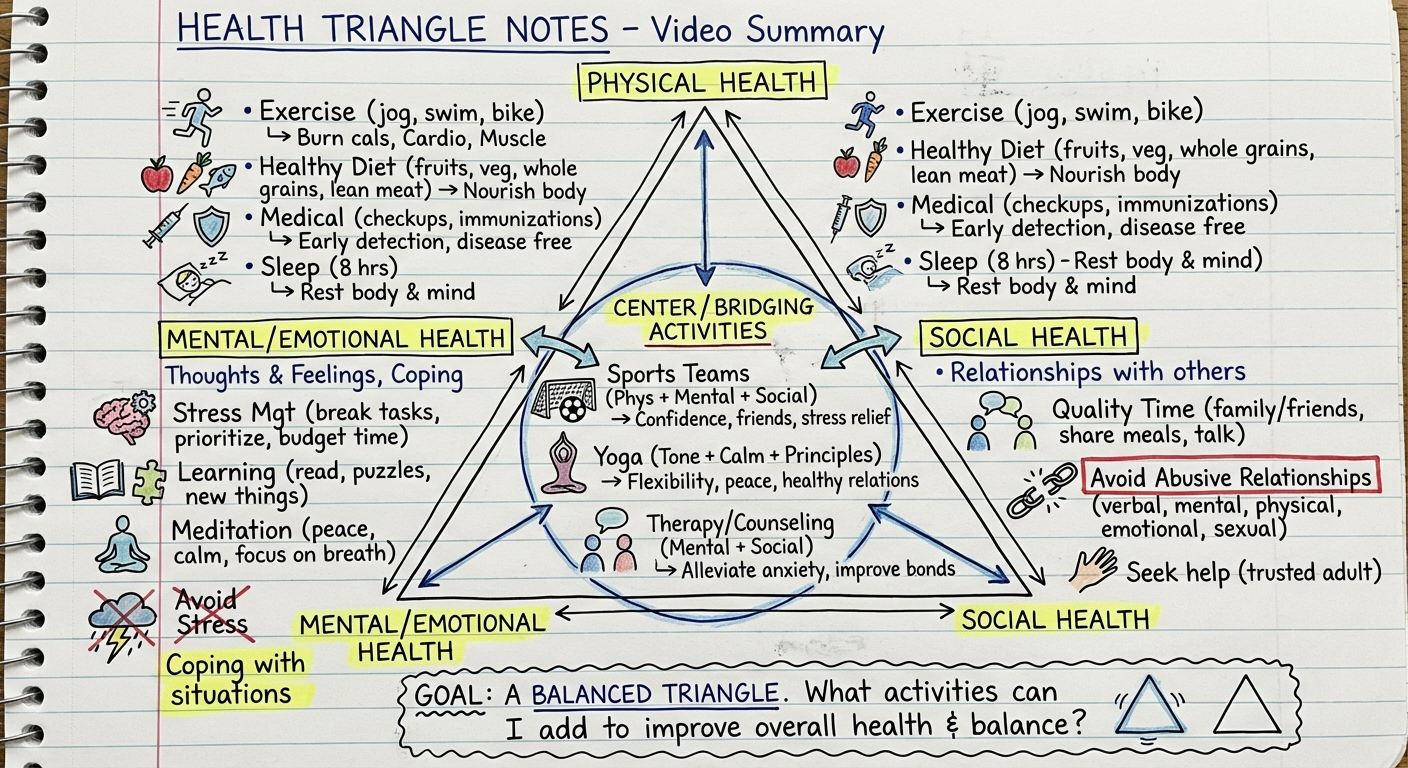 HEALTH TRIANGLE NOTES - Video Summary
PHYSICAL HEALTH
• Exercise (jog, swim, bike)
↳ Burn cals, Cardio, Muscle
• Healthy Diet (fruits, veg, whole
grains, lean meat) → Nourish body
• Medical (checkups, immunizations)
↳ Early detection, disease free
zzz
• Sleep (8 hrs)
↳ Rest body & mind
• Exercise (jog, swim, bike)
• Healthy Diet (fruits, veg, whole grains,
lean meat) → Nourish body
• Medical (checkups, immunizations)
↳ Early detection, disease free
zzz
• Sleep (8 hrs) - Rest body & mind)
↳ Rest body & mind
MENTAL/EMOTIONAL HEALTH
Thoughts & Feelings, Coping
Stress Mgt (break tasks,
prioritize, budget time)
Learning (read, puzzles,
new things)
Meditation (peace,
calm, focus on breath)
Avoid
Stress
Coping with
situations
CENTER/BRIDGING
ACTIVITIES
Sports Teams
(Phys + Mental + Social)
→ Confidence, friends, stress relief
Yoga (Tone + Calm + Principles)
→ Flexibility, peace, healthy relations
Therapy/Counseling
(Mental + Social)
↳ Alleviate anxiety, improve bonds
SOCIAL HEALTH
• Relationships with others
Quality Time (family/friends,
share meals, talk)
Avoid Abusive Relationships
(verbal, mental, physical,
emotional, sexual)
Seek help (trusted adult)
MENTAL/EMOTIONAL
HEALTH
SOCIAL HEALTH
GOAL: A BALANCED TRIANGLE. What activities can
I add to improve overall health & balance?